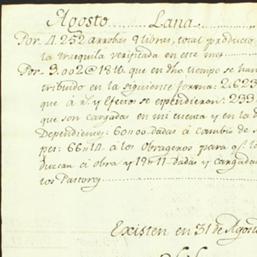 Agosto Lana
Por 4.252 arrobas 9 libras, total producto
la trasquila verificada en este mes
Por 3.002@ 18 lb que en dho tiempo se han
tribuido en la siguiente forma: 2.623
que á rl. y Efectos se expendieron: 233
que son cargadas en mi cuenta y en la d
Dependientes: 60 dadas á cambio de
per: 66 á los Obrageros para q.e l
duzcan á obra y 19 dadas y cargada
los Pastores
Existen en 31 de Agosto